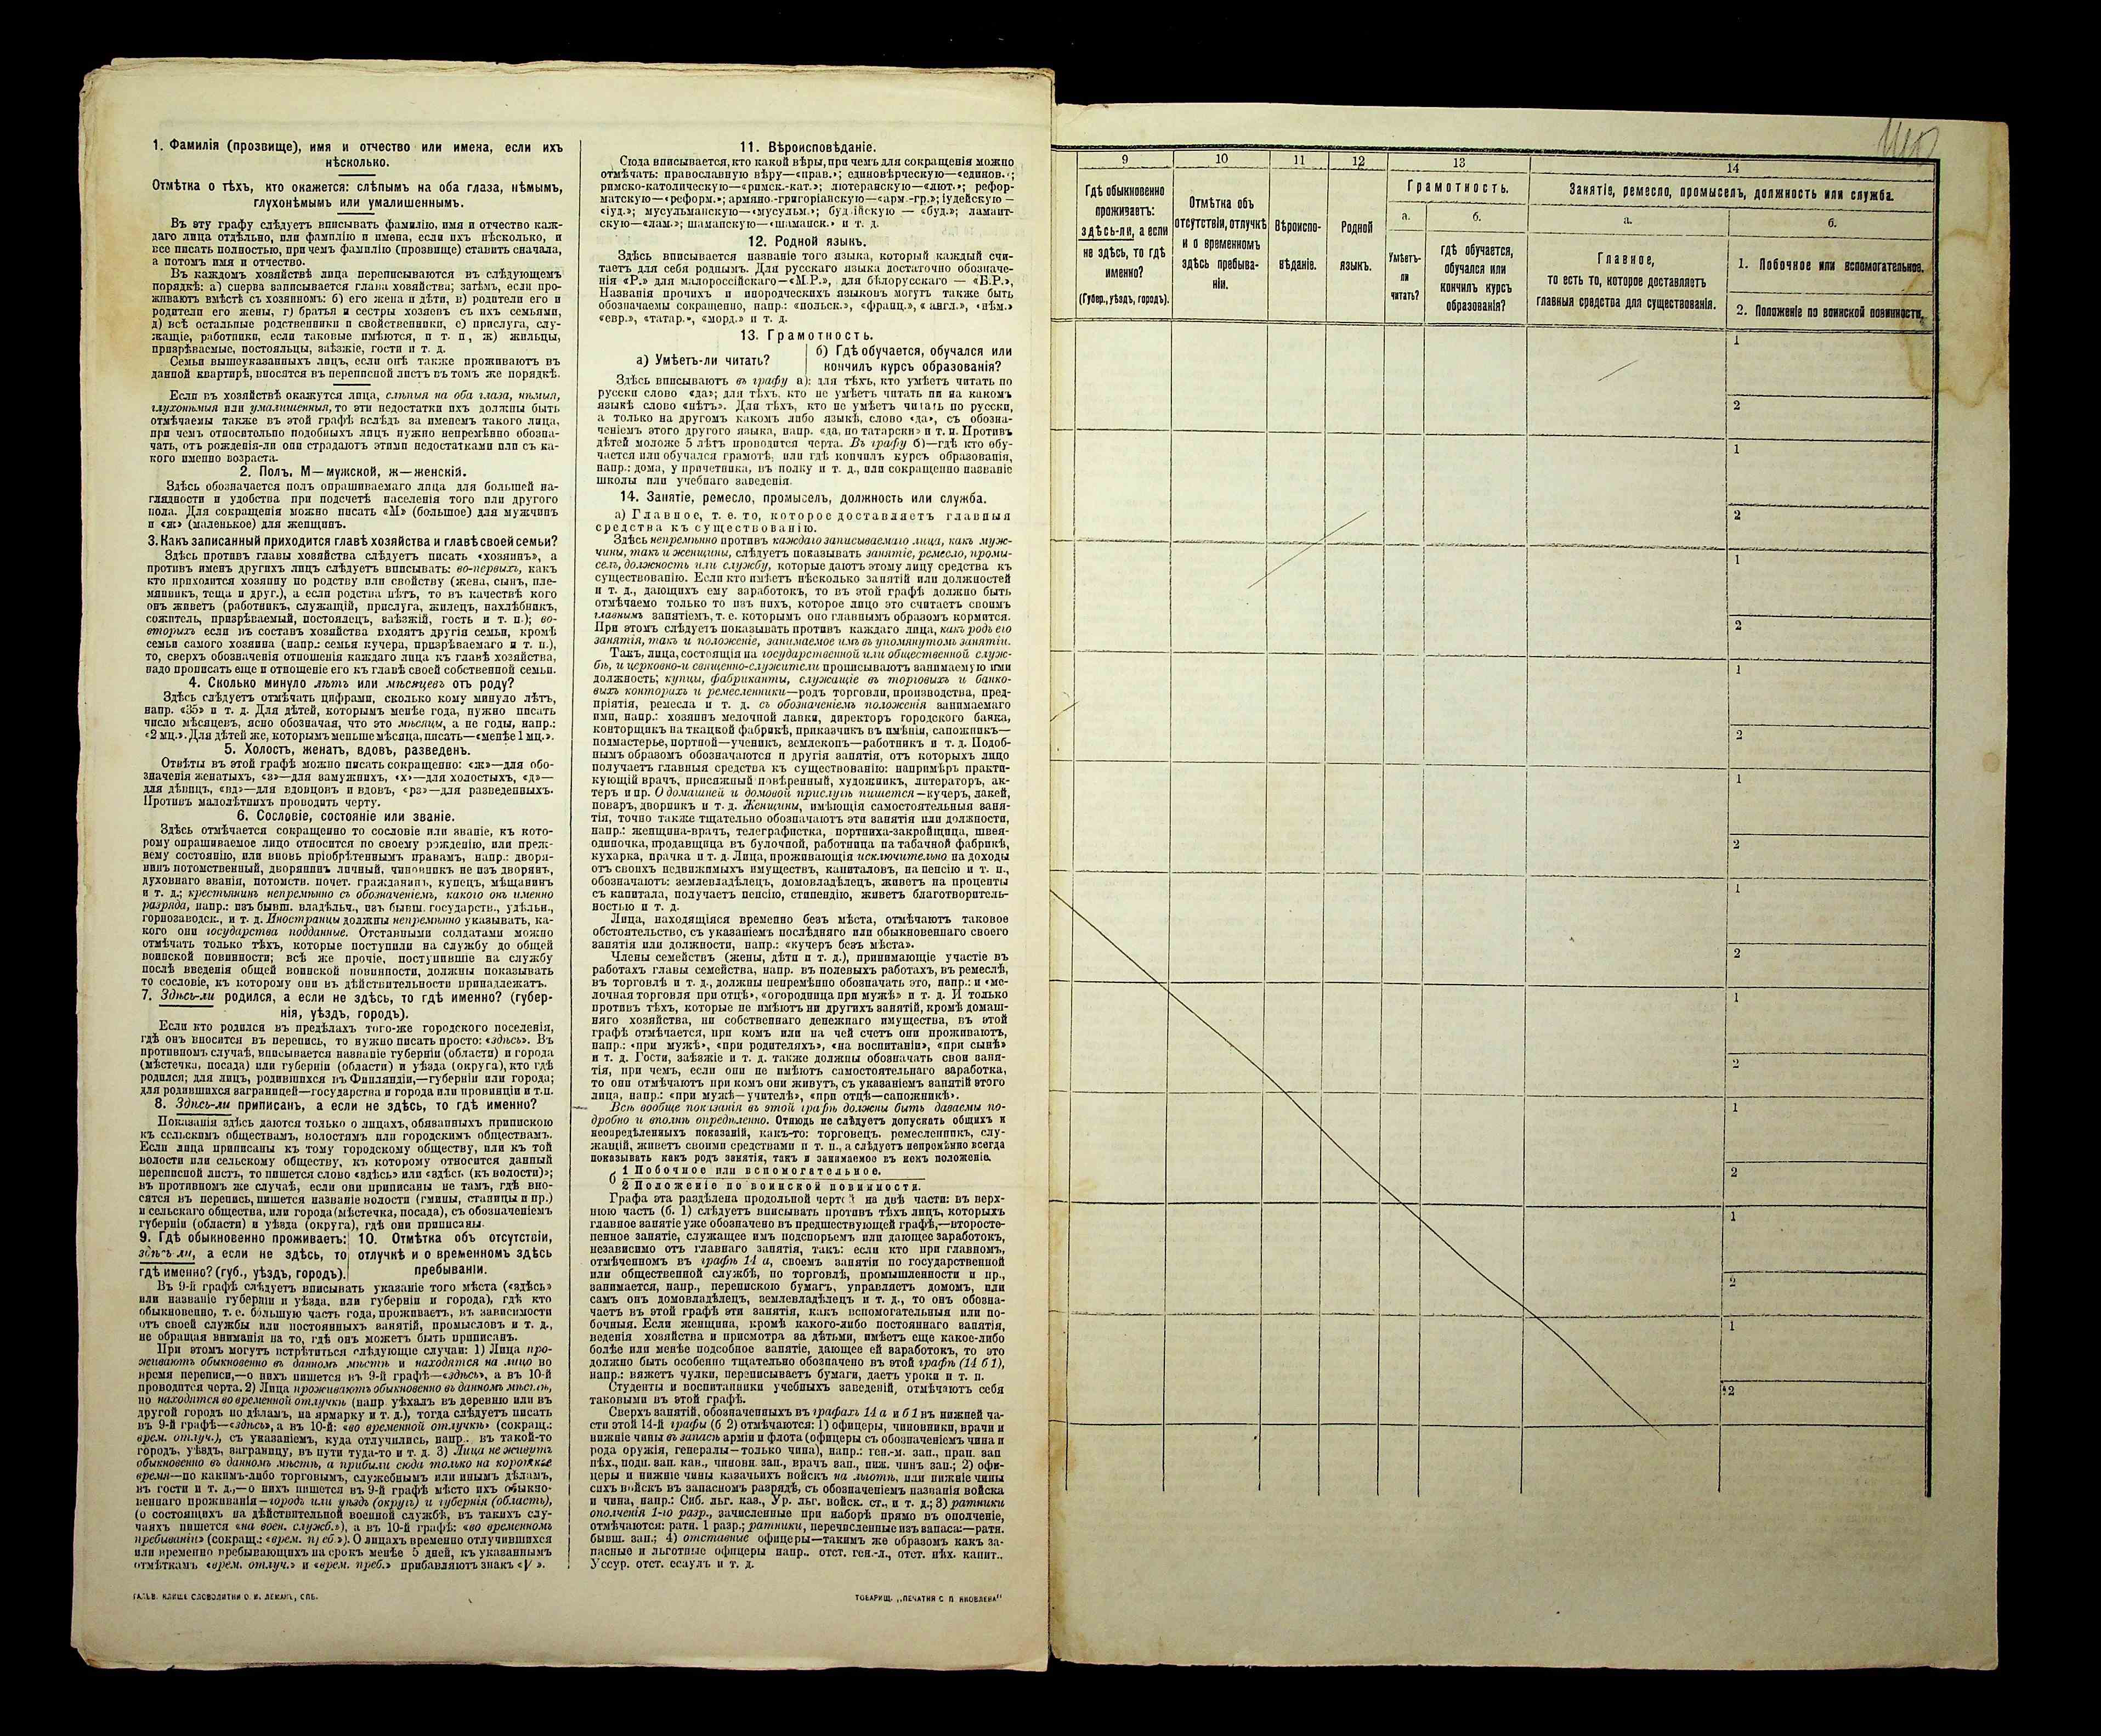 1. Фамилія (прозвище), имя и отчество или имена, если ихъ
нѣсколько.
Отмѣтка о тѣхъ, кто окажется: слѣпымъ на оба глаза, нѣмымъ,
глухонѣмымъ или умалишеннымъ.
Въ эту графу слѣдуетъ вписывать фамилію, имя и отчество каж-
даго лица отдѣльно, или фамилію и имена, если ихъ нѣсколько, и
все писать полностью, при чемъ фамилію (прозвище) ставить сначала,
а потомъ имя и отчество.
Въ каждомъ хозяйствѣ лица переписываются въ слѣдующемъ
порядкѣ: а) сперва записывается глава хозяйства; затѣмъ, если про-
живаютъ вмѣстѣ съ хозяиномъ: б) его жена и дѣти, в) родители его и
родители его жены, г) братья и сестры хозяевъ съ ихъ семьями,
д) всѣ остальные родственники и свойственники, е) прислуга, слу-
жащіе, работники, если таковые имѣются, и т. п, ж) жильцы,
призрѣваемые, постояльцы, заѣзжіе, гости и т. д.
Семьи вышеуказанныхъ лицъ, если онѣ также проживаютъ въ
данной квартирѣ, вносятся въ переписной листъ въ томъ же порядкѣ.
Если въ хозяйствѣ окажутся лица, слѣпыя на оба глаза, нѣмыя,
глухонѣмыя или умалишенныя, то эти недостатки ихъ должны быть
отмѣчаемы также въ этой графѣ вслѣдъ за именемъ такого лица,
при чемъ относительно подобныхъ лицъ нужно непремѣнно обозна-
чать, отъ рожденія-ли они страдаютъ этими недостатками или съ ка-
кого именно возраста.
2. Полъ, М—мужской, ж—женскій.
Здѣсь обозначается полъ опрашиваемаго лица для большей на-
глядности и удобства при подсчетѣ населенія того или другого
пола. Для сокращенія можно писать «М» (большое) для мужчинъ
и «ж» (маленькое) для женщинъ.
3. Какъ записанный приходится главѣ хозяйства и главѣ своей семьи?
Здѣсь противъ главы хозяйства слѣдуетъ писать «хозяинъ», а
противъ именъ другихъ лицъ слѣдуетъ вписывать: во-первыхъ, какъ
кто приходится хозяину по родству или свойству (жена, сынъ, пле-
мянникъ, теща и друг.), а если родства нѣтъ, то въ качествѣ кого
онъ живетъ (работникъ, служащій, прислуга, жилецъ, нахлѣбникъ,
сожитель, призрѣваемый, постоялецъ, заѣзжій, гость и т. п.); во-
вторыхъ если въ составъ хозяйства входятъ другія семьи, кромѣ
семьи самого хозяина (напр.: семья кучера, призрѣваемаго и т. п.),
то, сверхъ обозначенія отношенія каждаго лица къ главѣ хозяйства,
надо прописать еще и отношеніе его къ главѣ своей собственной семьи.
4. Сколько минуло лѣтъ или мѣсяцевъ отъ роду?
Здѣсь слѣдуетъ отмѣчать цифрами, сколько кому минуло лѣтъ,
напр. «35» и т. д. Для дѣтей, которымъ менѣе года, нужно писать
число мѣсяцевъ, ясно обозначая, что это мѣсяцы, а не годы, напр.:
«2 мц.». Для дѣтей же, которымъ меньше мѣсяца, писать—«менѣе 1 мц.».
5. Холостъ, женатъ, вдовъ, разведенъ.
Отвѣты въ этой графѣ можно писать сокращенно: «ж»—для обо-
значенія женатыхъ, «з»—для замужнихъ, «х»—для холостыхъ, «д»—
для дѣвицъ, «вд»—для вдовцовъ и вдовъ, «рз»—для разведенныхъ.
Противъ малолѣтнихъ проводить черту.
6. Сословіе, состояніе или званіе.
Здѣсь отмѣчается сокращенно то сословіе или званіе, къ кото-
рому опрашиваемое лицо относится по своему рожденію, или преж-
нему состоянію, или вновь пріобрѣтеннымъ правамъ, напр.: дворя-
нинъ потомственный, дворянинъ личный, чиновникъ не изъ дворянъ,
духовнаго званія, потомств. почет. гражданинъ, купецъ, мѣщанинъ
и т. д.; крестьянинъ непремѣнно съ обозначеніемъ, какого онъ именно
разряда, напр.: изъ бывш. владѣльч., изъ бывш. государств., удѣльн.,
горнозаводск., и т. д. Иностранцы должны непремѣнно указывать, ка-
кого они государства подданные. Отставными солдатами можно
отмѣчать только тѣхъ, которые поступили на службу до общей
воинской повинности; всѣ же прочіе, поступившіе на службу
послѣ введенія общей воинской повинности, должны показывать
то сословіе, къ которому они въ дѣйствительности принадлежатъ.
7. Здѣсь-ли родился, а если не здѣсь, то гдѣ именно? (губер-
нія, уѣздъ, городъ).
Если кто родился въ предѣлахъ того-же городского поселенія,
гдѣ онъ вносится въ перепись, то нужно писать просто: «здѣсь». Въ
противномъ случаѣ, вписывается названіе губерніи (области) и города
(мѣстечка, посада) или губерніи (области) и уѣзда (округа), кто гдѣ
родился; для лицъ, родившихся въ Финляндіи,—губерніи или города;
для родившихся заграницей—государства и города или провинціи и т.п.
8. Здѣсь-ли приписанъ, а если не здѣсь, то гдѣ именно?
Показанія здѣсь даются только о лицахъ, обязанныхъ припискою
къ сельскимъ обществамъ, волостямъ или городскимъ обществамъ.
Если лица приписаны къ тому городскому обществу, или къ той
волости или сельскому обществу, къ которому относится данный
переписной листъ, то пишется слово «здѣсь» или «здѣсь (къ волости)»;
въ противномъ же случаѣ, если они приписаны не тамъ, гдѣ вно-
сятся въ перепись, пишется названіе волости (гмины, станицы и пр.)
и сельскаго общества, или города (мѣстечка, посада), съ обозначеніемъ
губерніи (области) и уѣзда (округа), гдѣ они приписаны.
9. Гдѣ обыкновенно проживаетъ:
здѣсь ли, а если не здѣсь, то
гдѣ именно? (губ., уѣздъ, городъ).
10. Отмѣтка объ отсутствіи,
отлучкѣ и о временномъ здѣсь
пребываніи.
Въ 9-й графѣ слѣдуетъ вписывать указаніе того мѣста («здѣсь»
или названіе губерніи и уѣзда, или губерніи и города), гдѣ кто
обыкновенно, т. е. большую часть года, проживаетъ, въ зависимости
отъ своей службы или постоянныхъ занятій, промысловъ и т. д.,
не обращая вниманія на то, гдѣ онъ можетъ быть приписанъ.
При этомъ могутъ встрѣтиться слѣдующіе случаи: 1) Лица про-
живаютъ обыкновенно въ данномъ мѣстѣ и находятся на лицо во
время переписи,—о нихъ пишется въ 9-й графѣ—«здѣсь», а въ 10-й
проводится черта. 2) Лица проживаютъ обыкновенно въ данномъ мѣстѣ,
но находятся во временной отлучкѣ (напр уѣхалъ въ деревню или въ
другой городъ по дѣламъ, на ярмарку и т. д.), тогда слѣдуетъ писать
въ 9-й графѣ—«здѣсь», а въ 10-й: «во временной отлучкѣ» (сокращ.:
врем. отлуч.), съ указаніемъ, куда отлучились, напр.: въ такой-то
городъ, уѣздъ, заграницу, въ пути туда-то и т. д. 3) Лица не живутъ
обыкновенно въ данномъ мѣстѣ, а прибыли сюда только на короткое
время—по какимъ-либо торговымъ, служебнымъ или инымъ дѣламъ,
въ гости и т. д.,—о нихъ пишется въ 9-й графѣ мѣсто ихъ обыкно-
веннаго проживанія—городъ или уѣздъ (округъ) и губернія (область),
(о состоящихъ на дѣйствительной военной службѣ, въ такихъ слу-
чаяхъ пишется «на воен. служб.»), а въ 10-й графѣ: «во временномъ
пребываніи» (сокращ.: «врем. преб.»). О лицахъ временно отлучившихся
или временно пребывающихъ на срокъ менѣе 5 дней, къ указаннымъ
отмѣткамъ «врем. отлуч.» и «врем. преб.» прибавляютъ знакъ «V».
ГАЛЬВ. КЛИШЕ СЛОВОЛИТНИ О. И. ЛЕМАНЪ, СПБ.
11. Вѣроисповѣданіе.
Сюда вписывается, кто какой вѣры, при чемъ для сокращенія можно
отмѣчать: православную вѣру—«прав.»; единовѣрческую—«единов.»;
римско-католическую—«римск.-кат.»; лютеранскую—«лют.»; рефор-
матскую—«реформ.»; армяно-григоріанскую—«арм.-гр.»; іудейскую—
«іуд.»; мусульманскую—«мусульм.»; буддійскую — «буд.»; ламаит-
скую—«лам.»; шаманскую—«шаманск.» и т. д.
12. Родной языкъ.
Здѣсь вписывается названіе того языка, который каждый счи-
таетъ для себя роднымъ. Для русскаго языка достаточно обозначе-
нія «Р.» для малороссійскаго—«М.Р.», для бѣлорусскаго — «Б.Р.»,
Названія прочихъ и инородческихъ языковъ могутъ также быть
обозначаемы сокращенно, напр.: «польск.», «франц.», «англ.», «нѣм.»
«евр.», «татар.», «морд.» и т. д.
13. Грамотность.
а) Умѣетъ-ли читать?
б) Гдѣ обучается, обучался или
кончилъ курсъ образованія?
Здѣсь вписываютъ въ графу а): для тѣхъ, кто умѣетъ читать по
русски слово «да»; для тѣхъ, кто не умѣетъ читать ни на какомъ
языкѣ слово «нѣтъ». Для тѣхъ, кто не умѣетъ читать по русски,
а только на другомъ какомъ либо языкѣ, слово «да», съ обозна-
ченіемъ этого другого языка, напр. «да, по татарски» и т. п. Противъ
дѣтей моложе 5 лѣтъ проводится черта. Въ графу б)—гдѣ кто обу-
чается или обучался грамотѣ, или гдѣ кончилъ курсъ образованія,
напр.: дома, у причетника, въ полку и т. д., или сокращенно названіе
школы или учебнаго заведенія.
14. Занятіе, ремесло, промыселъ, должность или служба.
а) Главное, т. е. то, которое доставляетъ главныя
средства къ существованію.
Здѣсь непремѣнно противъ каждаго записываемаго лица, какъ муж-
чины, такъ и женщины, слѣдуетъ показывать занятіе, ремесло, промы-
селъ, должность или службу, которые даютъ этому лицу средства къ
существованію. Если кто имѣетъ нѣсколько занятій или должностей
и т. д., дающихъ ему заработокъ, то въ этой графѣ должно быть
отмѣчаемо только то изъ нихъ, которое лицо это считаетъ своимъ
главнымъ занятіемъ, т. е. которымъ оно главнымъ образомъ кормится.
При этомъ слѣдуетъ показывать противъ каждаго лица, какъ родъ его
занятія, такъ и положеніе, занимаемое имъ въ упомянутомъ занятіи.
Такъ, лица, состоящія на государственной или общественной служ-
бѣ, и церковно-и священно-служители прописываютъ занимаемую ими
должность; купцы, фабриканты, служащіе въ торговыхъ и банко-
выхъ конторахъ и ремесленники—родъ торговли, производства, пред-
пріятія, ремесла и т. д. съ обозначеніемъ положенія занимаемаго
ими, напр.: хозяинъ мелочной лавки, директоръ городского банка,
конторщикъ на ткацкой фабрикѣ, приказчикъ въ имѣніи, сапожникъ—
подмастерье, портной—ученикъ, землекопъ—работникъ и т. д. Подоб-
нымъ образомъ обозначаются и другія занятія, отъ которыхъ лицо
получаетъ главныя средства къ существованію: напримѣръ практи-
кующій врачъ, присяжный повѣренный, художникъ, литераторъ, ак-
теръ и пр. О домашней и домовой прислугѣ пишется—кучеръ, лакей,
поваръ, дворникъ и т. д. Женщины, имѣющія самостоятельныя заня-
тія, точно также тщательно обозначаютъ эти занятія или должности,
напр.: женщина-врачъ, телеграфистка, портниха-закройщица, швея-
одиночка, продавщица въ булочной, работница на табачной фабрикѣ,
кухарка, прачка и т. д. Лица, проживающія исключительно на доходы
отъ своихъ недвижимыхъ имуществъ, капиталовъ, на пенсію и т. п.,
обозначаютъ: землевладѣлецъ, домовладѣлецъ, живетъ на проценты
съ капитала, получаетъ пенсію, стипендію, живетъ благотворитель-
ностью и т. д.
Лица, находящіяся временно безъ мѣста, отмѣчаютъ таковое
обстоятельство, съ указаніемъ послѣдняго или обыкновеннаго своего
занятія или должности, напр.: «кучеръ безъ мѣста».
Члены семействъ (жены, дѣти и т. д.), принимающіе участіе въ
работахъ главы семейства, напр. въ полевыхъ работахъ, въ ремеслѣ,
въ торговлѣ и т. д., должны непремѣнно обозначать это, напр.: и «ме-
лочная торговля при отцѣ», «огородница при мужѣ» и т. д. И только
противъ тѣхъ, которые не имѣютъ ни другихъ занятій, кромѣ домаш-
няго хозяйства, ни собственнаго денежнаго имущества, въ этой
графѣ отмѣчается, при комъ или на чей счетъ они проживаютъ,
напр.: «при мужѣ», «при родителяхъ», «на воспитаніи», «при сынѣ»
и т. д. Гости, заѣзжіе и т. д. также должны обозначать свои заня-
тія, при чемъ, если они не имѣютъ самостоятельнаго заработка,
то они отмѣчаютъ при комъ они живутъ, съ указаніемъ занятій этого
лица, напр.: «при мужѣ—учителѣ», «при отцѣ—сапожникѣ».
Всѣ вообще показанія въ этой графѣ должны быть даваемы по-
дробно и вполнѣ опредѣленно. Отнюдь не слѣдуетъ допускать общихъ и
неопредѣленныхъ показаній, какъ-то: торговецъ, ремесленникъ, слу-
жащій, живетъ своими средствами и т. п., а слѣдуетъ непремѣнно всегда
показывать какъ родъ занятія, такъ и занимаемое въ немъ положеніе.
б 1 Побочное или вспомогательное.
2 Положеніе по воинской повинности.
Графа эта раздѣлена продольной чертой на двѣ части: въ верх-
нюю часть (б. 1) слѣдуетъ вписывать противъ тѣхъ лицъ, которыхъ
главное занятіе уже обозначено въ предшествующей графѣ,—второсте-
пенное занятіе, служащее имъ подспорьемъ или дающее заработокъ,
независимо отъ главнаго занятія, такъ: если кто при главномъ,
отмѣченномъ въ графѣ 14 а, своемъ занятіи по государственной
или общественной службѣ, по торговлѣ, промышленности и пр.,
занимается, напр., перепискою бумагъ, управляетъ домомъ, или
самъ онъ домовладѣлецъ, землевладѣлецъ и т. д., то онъ обозна-
чаетъ въ этой графѣ эти занятія, какъ вспомогательныя или по-
бочныя. Если женщина, кромѣ какого-либо постояннаго занятія,
веденія хозяйства и присмотра за дѣтьми, имѣетъ еще какое-либо
болѣе или менѣе подсобное занятіе, дающее ей заработокъ, то это
должно быть особенно тщательно обозначено въ этой графѣ (14 б 1),
напр.: вяжетъ чулки, переписываетъ бумаги, даетъ уроки и т. п.
Студенты и воспитанники учебныхъ заведеній, отмѣчаютъ себя
таковыми въ этой графѣ.
Сверхъ занятій, обозначенныхъ въ графахъ 14 а и б 1 въ нижней ча-
сти этой 14-й графы (б 2) отмѣчаются: 1) офицеры, чиновники, врачи и
нижніе чины въ запасѣ арміи и флота (офицеры съ обозначеніемъ чина и
рода оружія, генералы—только чина), напр.: ген.-м. зап., прап. зап
пѣх., подп. зап. кав., чиновн. зап., врачъ зап., ниж. чинъ зап.; 2) офи-
церы и нижніе чины казачьихъ войскъ на льготѣ, или нижніе чины
сихъ войскъ въ запасномъ разрядѣ, съ обозначеніемъ названія войска
и чина, напр.: Сиб. льг. каз., Ур. льг. войск. ст., и т. д.; 3) ратники
ополченія 1-го разр., зачисленные при наборѣ прямо въ ополченіе,
отмѣчаются: ратн. 1 разр.; ратники, перечисленные изъ запаса:—ратн.
бывш. зап.; 4) отставные офицеры—такимъ же образомъ какъ за-
пасные и льготные офицеры напр.. отст. ген.-л., отст. пѣх. капит..
Уссур. отст. есаулъ и т. д.
ТОВАРИЩ. „ПЕЧАТНЯ С. П. ЯКОВЛЕВА"
9
10
11
12
13
14
Гдѣ обыкновенно
проживаетъ:
здѣсь-ли, а если
не здѣсь, то гдѣ
именно?
(Губер., уѣздъ, городъ).
Отмѣтка объ
отсутствіи, отлучкѣ
и о временномъ
здѣсь пребыва-
ніи.
Вѣроиспо-
вѣданіе.
Родной
языкъ.
Грамотность.
а.
Умѣетъ-
ли
читать?
б.
гдѣ обучается,
обучался или
кончилъ курсъ
образованія?
Занятіе, ремесло, промыселъ, должность или служба.
а.
Главное,
то есть то, которое доставляетъ
главныя средства для существованія.
б.
1. Побочное или вспомогательное.
2. Положеніе по воинской повинности.
1
2
1
2
1
2
1
2
1
2
1
2
1
2
1
2
1
2
1
2